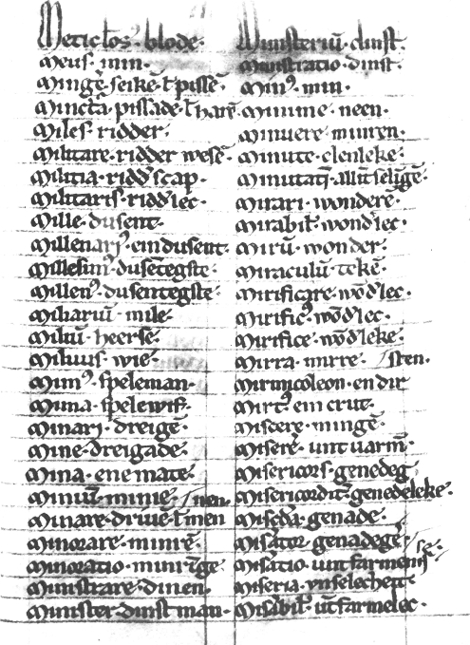 Meticłos᷒ · blode ·
Meus · min ·
Mingē · seikē ł pissē ·
Mincta · pissade · ł harē ·
Miles · ridder ·
Militare · ridder wesē ·
Militia · ridd᷒ scap ·
Militaris · ridd᷒lec ·
Mille · dusent ·
Millenari᷒ · ein dusent ·
Millesim᷒ · dusētegste ·
Millen᷒ · dusentegste ·
Miliariū · mile ·
Miliū · heerse ·
Miluus · wie ·
Mim᷒ · speleman ·
Mima · spelewif ·
Minari · dreigē ·
Mine · dreigade ·
Mina · ene mate ·
minnē / nen ·
Minare · driuē ł men
Minorare · minrē ·
Minoratio · minrīge
Ministrare · dinen ·
Minister · dinst man ·
Ministeriū · dinst ·
Ministratio · dinst ·
Min᷒ · min ·
Minime · neen ·
Minuere · minren ·
Minute · clenleke ·
Minutatī ·
Mirari · wonderē ·
Mirabił · wond᷒lec ·
Mirū · wonder ·
Miraculū · tekē ·
Mirificare · wōd᷒lec ·
Mirific᷒ · wōd᷒lec ·
Mirifice · wōd᷒leke ·
Mirra · mirre / sten ·
Mirmicoleon · en dir
Mirt᷒ · ein crut ·
Miscere · mingē ·
Miserē · unt varm̄ ·
Misericors · genedeg
Misericordit᷒ · genedeleke ·
Misc̄dia · genade ·
Mis᷒ator · genadegē᷒ / sē ·
Mis᷒atio · unt farmeniſ
Miseria · vnselecheit ·
Mis᷒abił᷒ · ūt farmelec ·